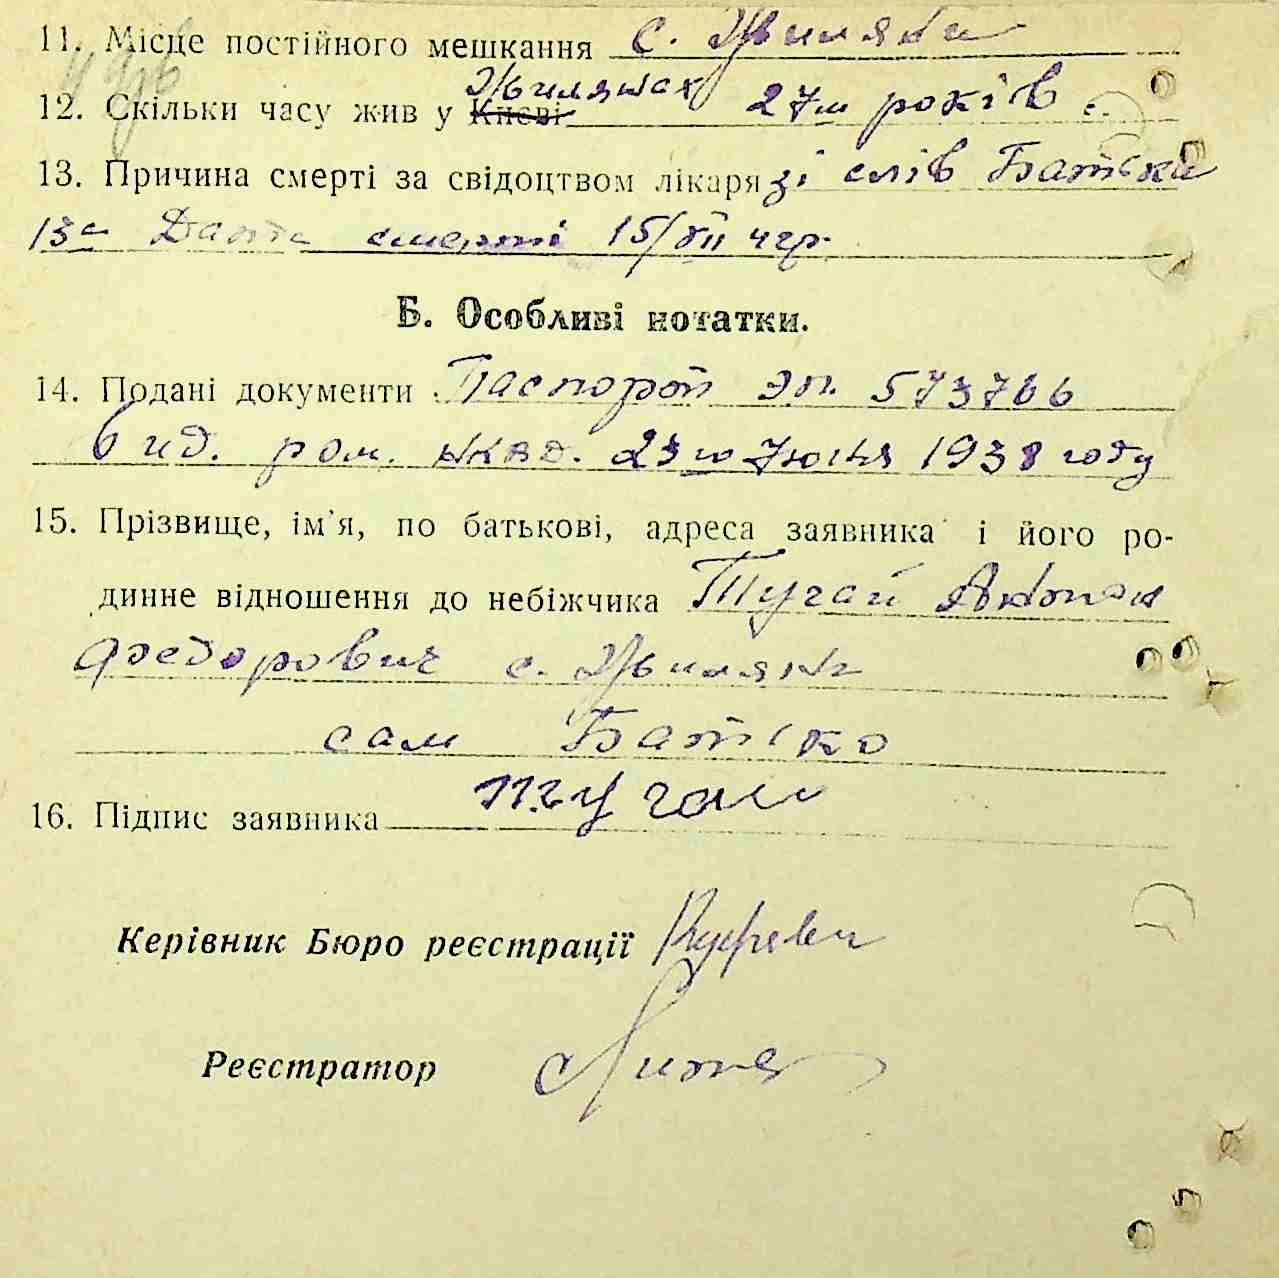 11. Місце постійного мешкання с. Жиляни
Жилянах
12. Скільки часу жив у Києві 27м років.
13. Причина смерті за свідоцтвом лікаря зі слів Батька
смерті 15/VII ц.р.
Б. Особливі нотатки.
14. Подані документи Паспорт эп. 573766
вид. ром. НКВД. 23го Июня 1938 году
15. Прізвище, ім'я, по батькові, адреса заявника і його ро-
динне відношення до небіжчика Тугай Антон
Федорович с. Жиляни
сам Батько
16. Підпис заявника Тугай
Керівник Бюро реєстрації
Реєстратор